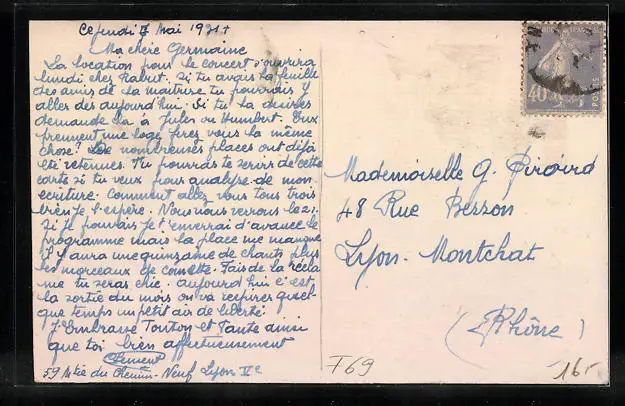 Ce jeudi 7 Mai 1931
Ma chère Germaine
La location pour le concert s'ouvrira
lundi chez Rabut. Si tu avais la feuille
des amis de la maîtrise tu pourrais y
aller dès aujourd'hui. Si tu la désires
demande la à Jules ou Humbert. Eux
prennent une loge ferez vous la même
chose? De nombreuses places ont déjà
été retenues. Tu pourras te servir de cette
carte si tu veux pour analyse de mon
écriture. Comment allez vous tous trois
bien je l'espère. Nous nous verrons le 21.
Si je pouvais je t'enverrai d'avance le
programme mais la place me manque
Il y aura une quinzaine de chants plus
les morceaux de Fais de la récla
me tu seras chic. aujourd'hui c'est
la sortie du mois on va respirer quel-
que temps un petit air de liberté.
J'Embrasse Tonton et Tante ainsi
que toi bien affectueusement
Clément
59 Mtée du Chemin-Neuf Lyon Ve
40c
POSTES
Mademoiselle G. Piroird
48 Rue Besson
Lyon-Montchat
(Rhône)
F69
16-